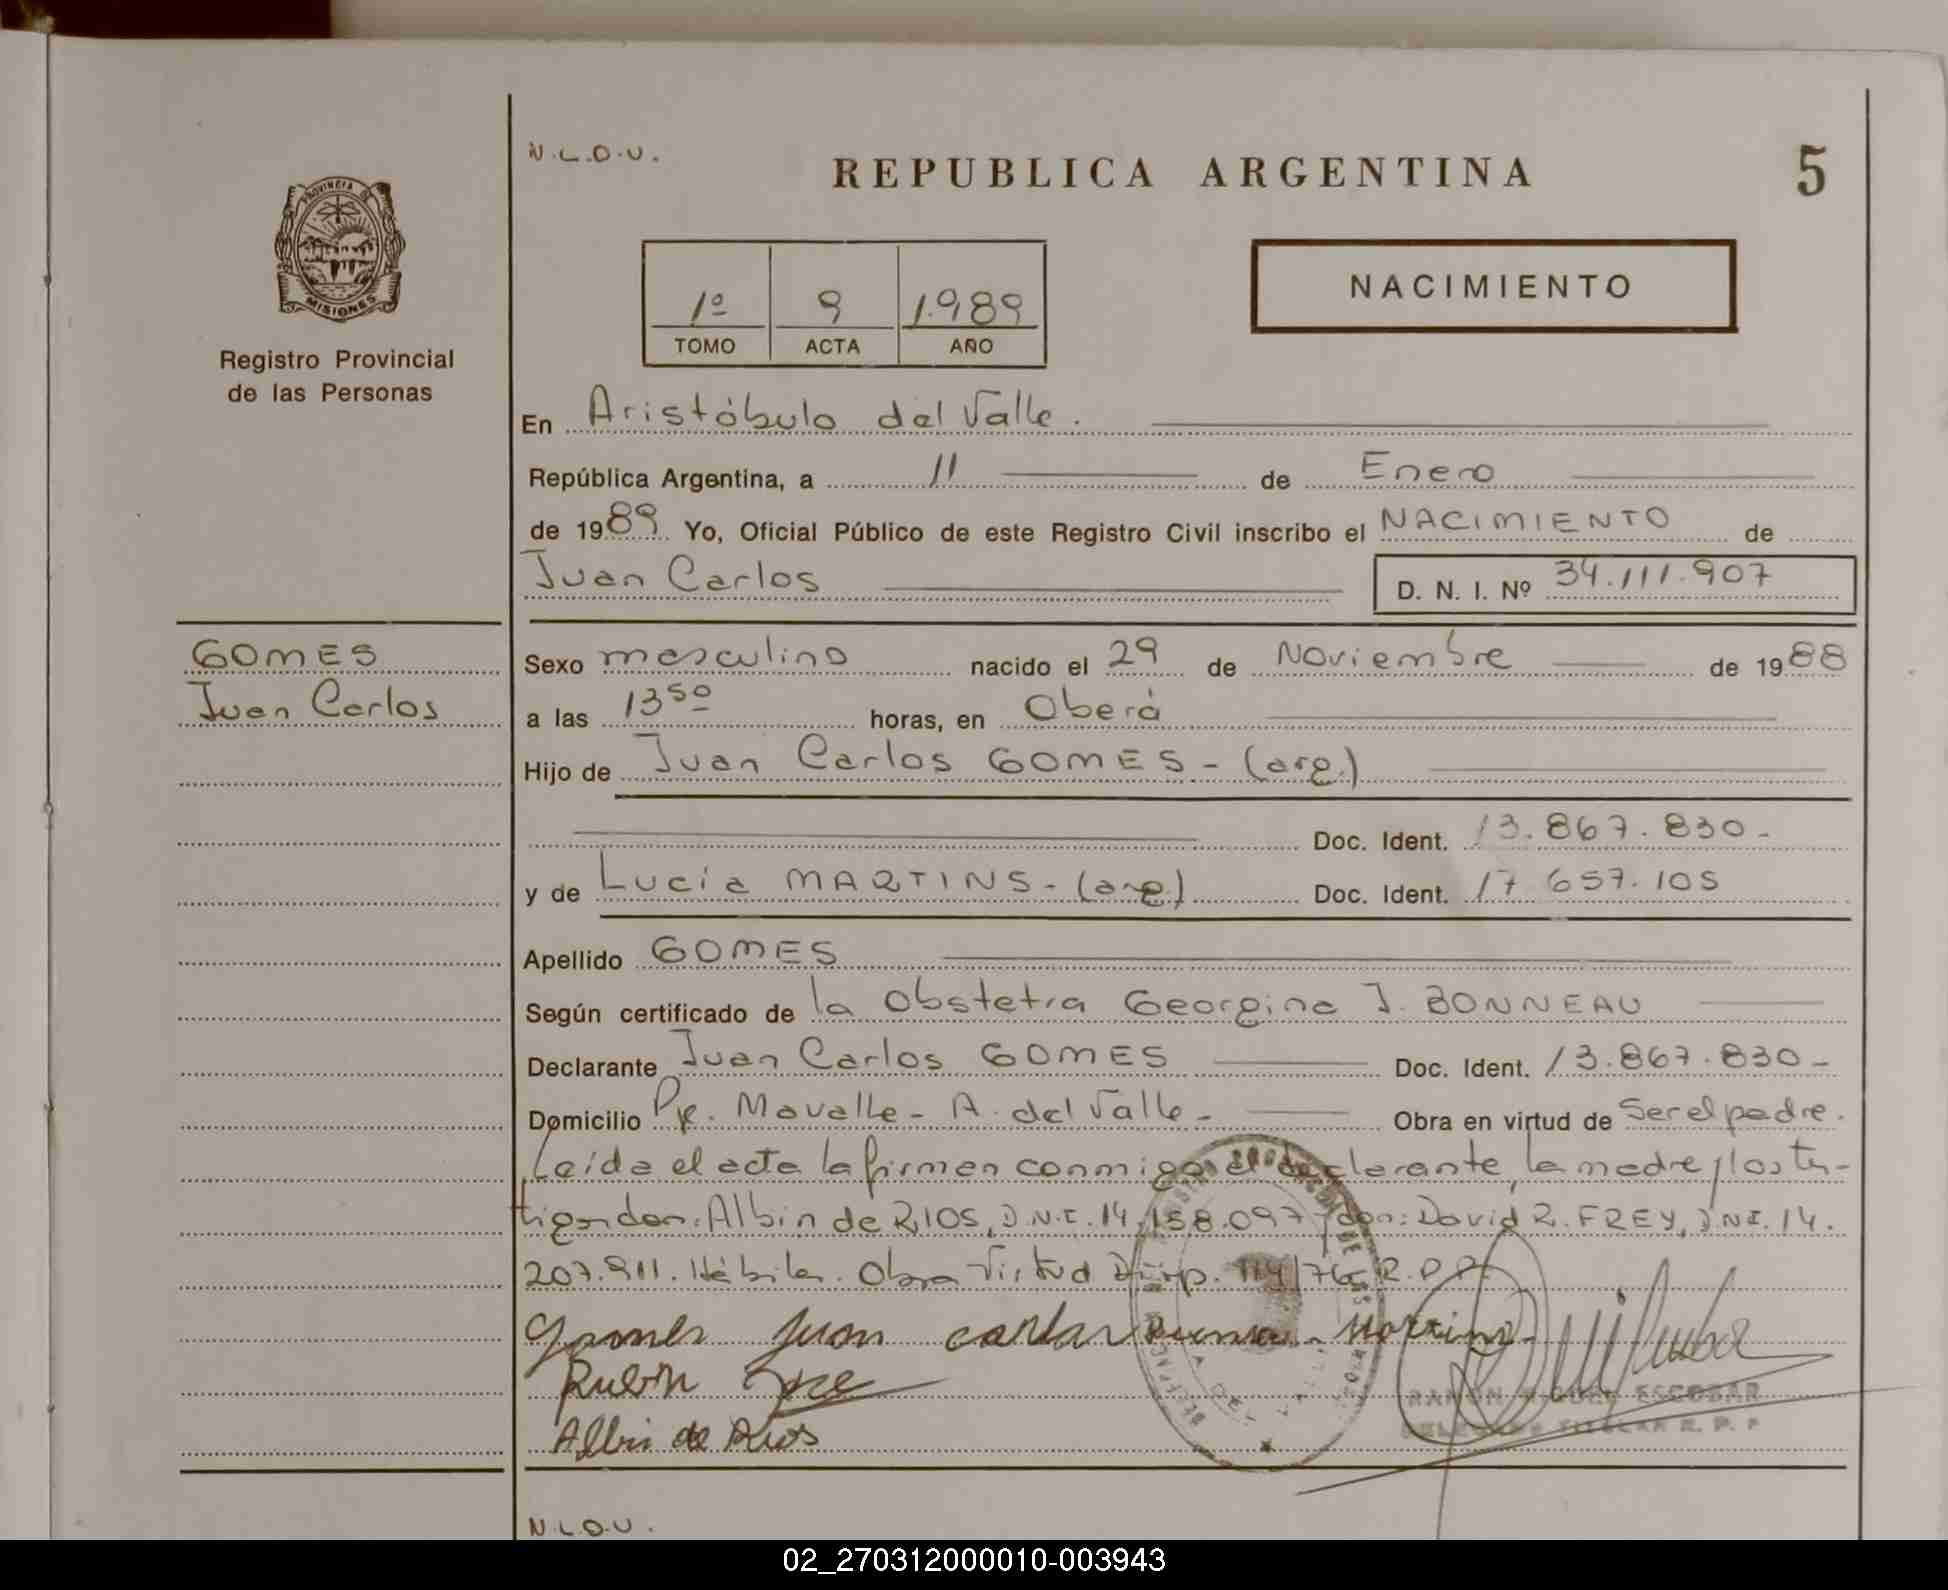 N.L.O.U.
REPUBLICA ARGENTINA
5
PROVINCIA DE
MISIONES
Registro Provincial
de las Personas
1º 9 1.989
TOMO ACTA AÑO
NACIMIENTO
En Aristóbulo del Valle.
República Argentina, a 11 de Enero
de 1989 Yo, Oficial Público de este Registro Civil inscribo el NACIMIENTO de
Juan Carlos
D. N. I. Nº 34.111.907
GOMES
Juan Carlos
Sexo masculino nacido el 29 de Noviembre de 1988
a las 13 50 horas, en Oberá
Hijo de Juan Carlos GOMES - (arg.)
Doc. Ident. 13.867.830-
y de Lucía MARTINS - (arg.) Doc. Ident. 17.657.105
Apellido GOMES
Según certificado de la Obstetra Georgina J. BONNEAU
Declarante Juan Carlos GOMES Doc. Ident. 13.867.830-
Domicilio Pje. Mavalle - A. del Valle - Obra en virtud de Ser el padre.
Leída el acta la firman conmigo el declarante, la madre y los tes-
tigos don: Albin de RIOS, D.N.I. 14.158.097 y don: David R. FREY, D.N.I. 14.
207.911. Hábiles. Obra Virtud Disp. 114/76 R.P.P.
Gomes Juan Carlos Martins
Albin de Rios
RAMON MIGUEL ESCOBAR
DELEGADO TITULAR R. P. P
N.L.O.U.
02_270312000010-003943